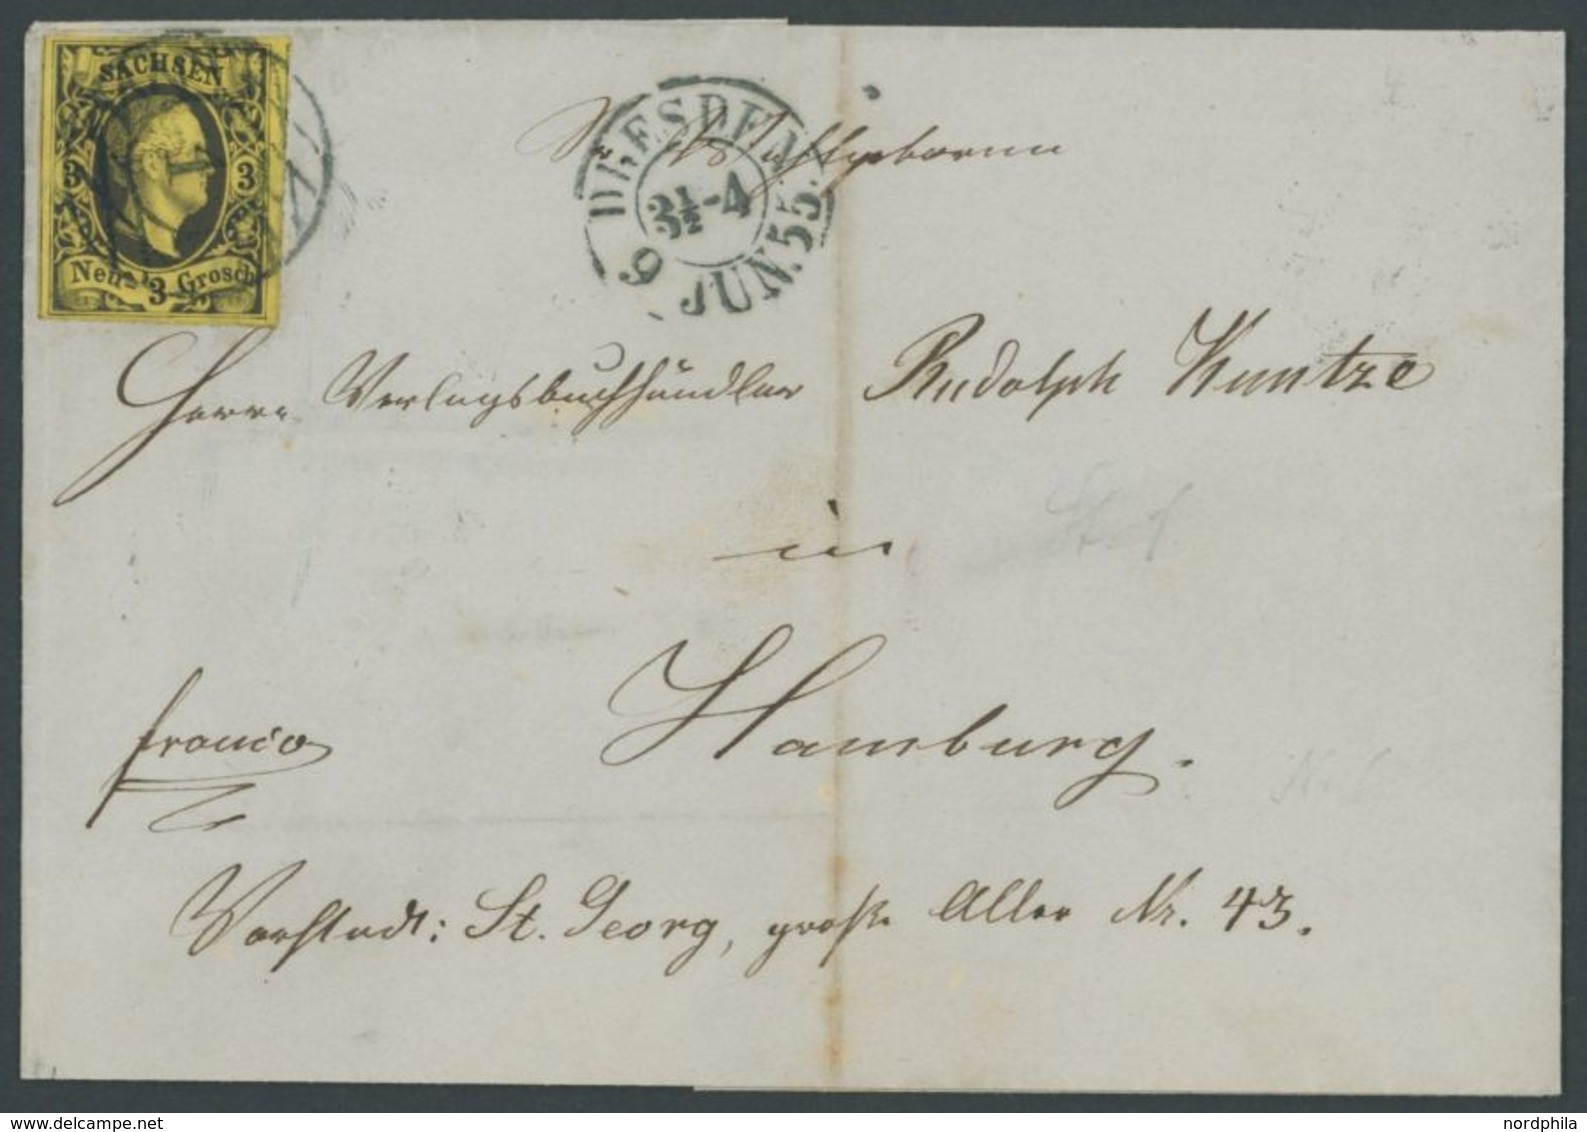 SACHSEN
3 3
Neu- 3 Grosch.
DRESDEN
3½-4
9 JUN. 55.
Sr. Wohlgeboren
Herrn Verlagsbuchhändler Rudolph Kuntze
in
Hamburg.
franco
Vorstadt: St. Georg, große Allee Nr. 43.
DELCAMPE.NET
nordphila